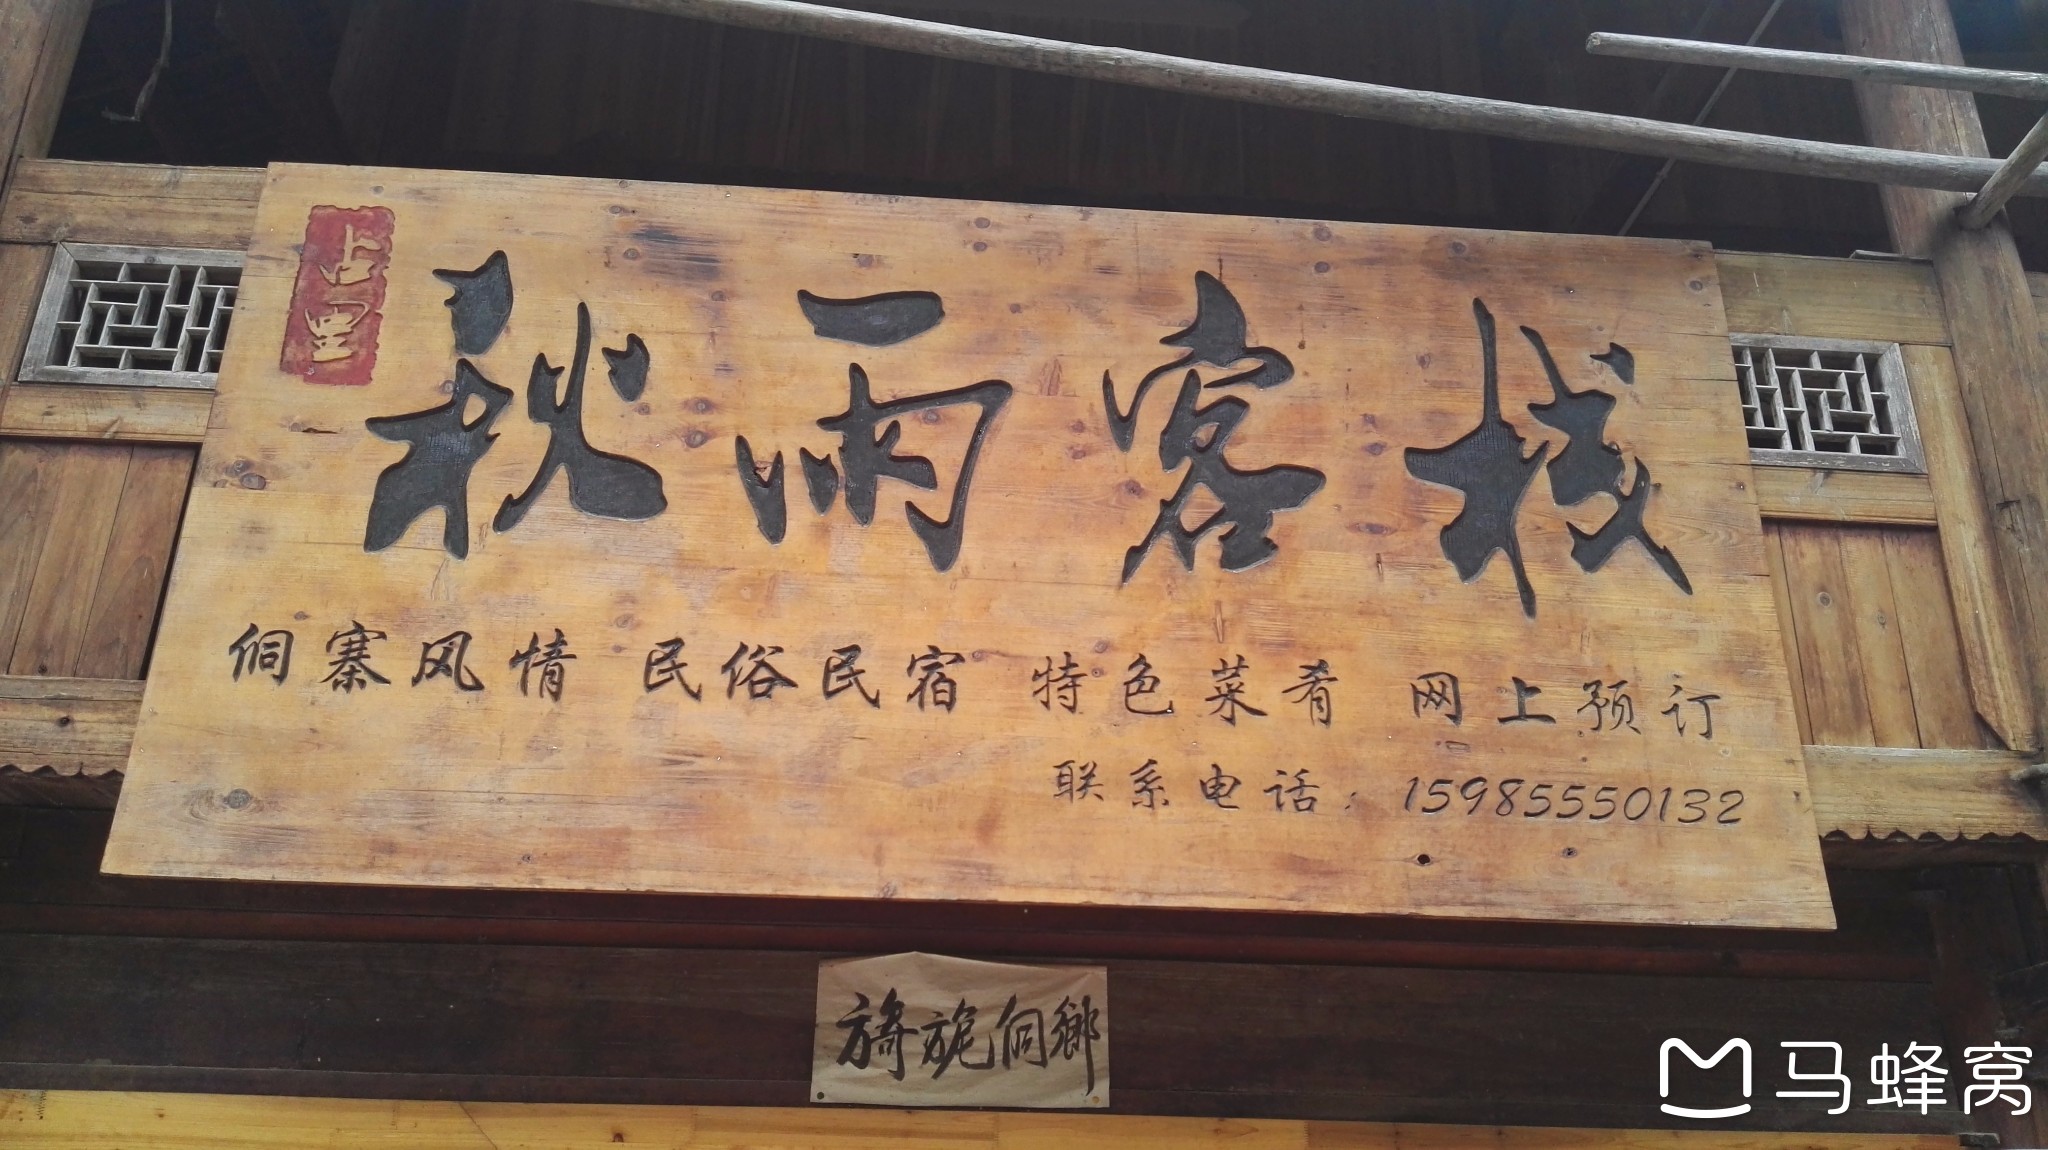 占里
秋雨客栈
侗寨风情 民俗民宿 特色菜肴 网上预订
联系电话：15985550132
旖旎侗鄉
马蜂窝